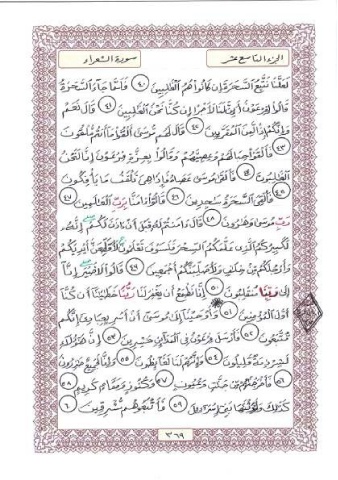 الجزء التاسع عشر
سورة الشعراء
لعلنا نتبع السحرة إن كانوا هم الغالبين ٤٠ فلما جاء السحرة
قالوا لفرعون أئن لنا لأجرا إن كنا نحن الغالبين ٤١ قال نعم
وإنكم إذا لمن المقربين ٤٢ قال لهم موسى ألقوا ما أنتم ملقون
٤٣ فألقوا حبالهم وعصيهم وقالوا بعزة فرعون إنا لنحن
الغالبون ٤٤ فألقى موسى عصاه فإذا هي تلقف ما يأفكون
٤٥ فألقي السحرة ساجدين ٤٦ قالوا آمنا برب العالمين ٤٧
رب موسى وهارون ٤٨ قال آمنتم له قبل أن آذن لكم إنه
لكبيركم الذي علمكم السحر فلسوف تعلمون لأقطعن أيديكم
وأرجلكم من خلاف ولأصلبنكم أجمعين ٤٩ قالوا لا ضير إنا
إلى ربنا منقلبون ٥٠ إنا نطمع أن يغفر لنا ربنا خطايانا أن كنا
أول المؤمنين ٥١ وأوحينا إلى موسى أن أسر بعبادي إنكم
متبعون ٥٢ فأرسل فرعون في المدائن حاشرين ٥٣ إن هؤلاء
لشرذمة قليلون ٥٤ وإنهم لنا لغائظون ٥٥ وإنا لجميع حاذرون
٥٦ فأخرجناهم من جنات وعيون ٥٧ وكنوز ومقام كريم ٥٨
كذلك وأورثناها بني إسرائيل ٥٩ فأتبعوهم مشرقين ٦٠
٣٦٩